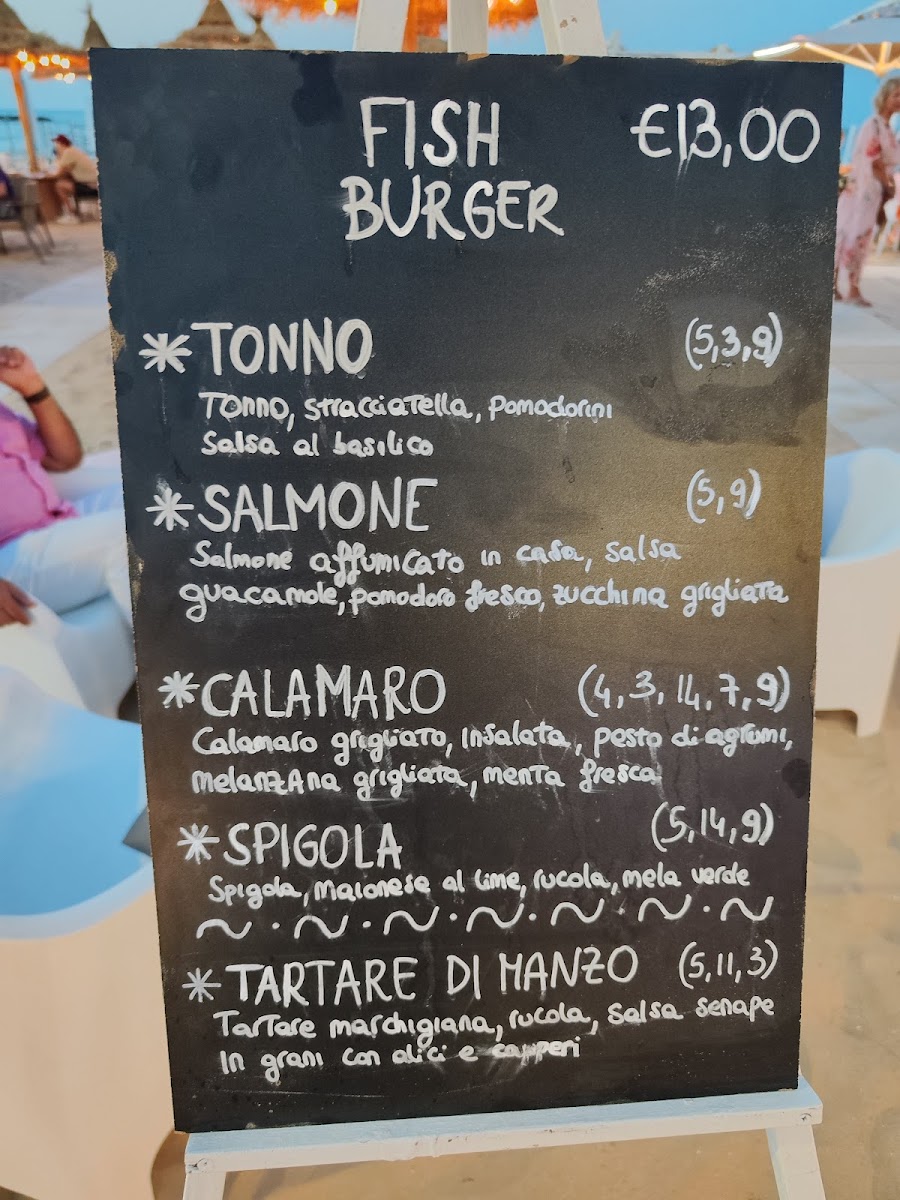 FISH €13,00
BURGER
*TONNO (5,3,9)
Tonno, stracciatella, pomodorini
Salsa al basilico
*SALMONE (5,9)
Salmone affumicato in casa, salsa
guacamole, pomodoro fresco, zucchina grigliata
*CALAMARO (4,3,14,7,9)
Calamaro grigliato, insalata, pesto di agrumi,
melanzana grigliata, menta fresca
*SPIGOLA (5,14,9)
Spigola, maionese al lime, rucola, mela verde
*TARTARE DI MANZO (5,11,3)
Tartare marchigiana, rucola, salsa senape
In grani con alici e capperi